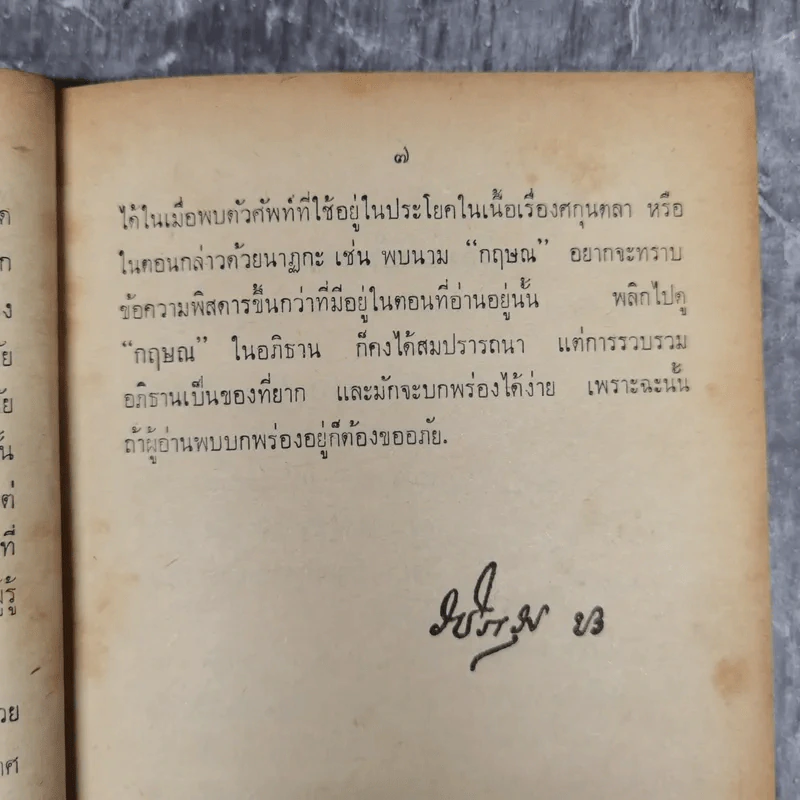 ๗
ได้ในเมื่อพบตัวศัพท์ที่ใช้อยู่ในประโยคในเนื้อเรื่องศกุนตลา หรือ
ในตอนกล่าวด้วยนาฏกะ เช่น พบนาม “กฤษณ” อยากจะทราบ
ข้อความพิสดารขึ้นกว่าที่มีอยู่ในตอนที่อ่านอยู่นั้น พลิกไปดู
“กฤษณ” ในอภิธาน ก็คงได้สมปรารถนา แต่การรวบรวม
อภิธานเป็นของที่ยาก และมักจะบกพร่องได้ง่าย เพราะฉะนั้น
ถ้าผู้อ่านพบบกพร่องอยู่ก็ต้องขออภัย.